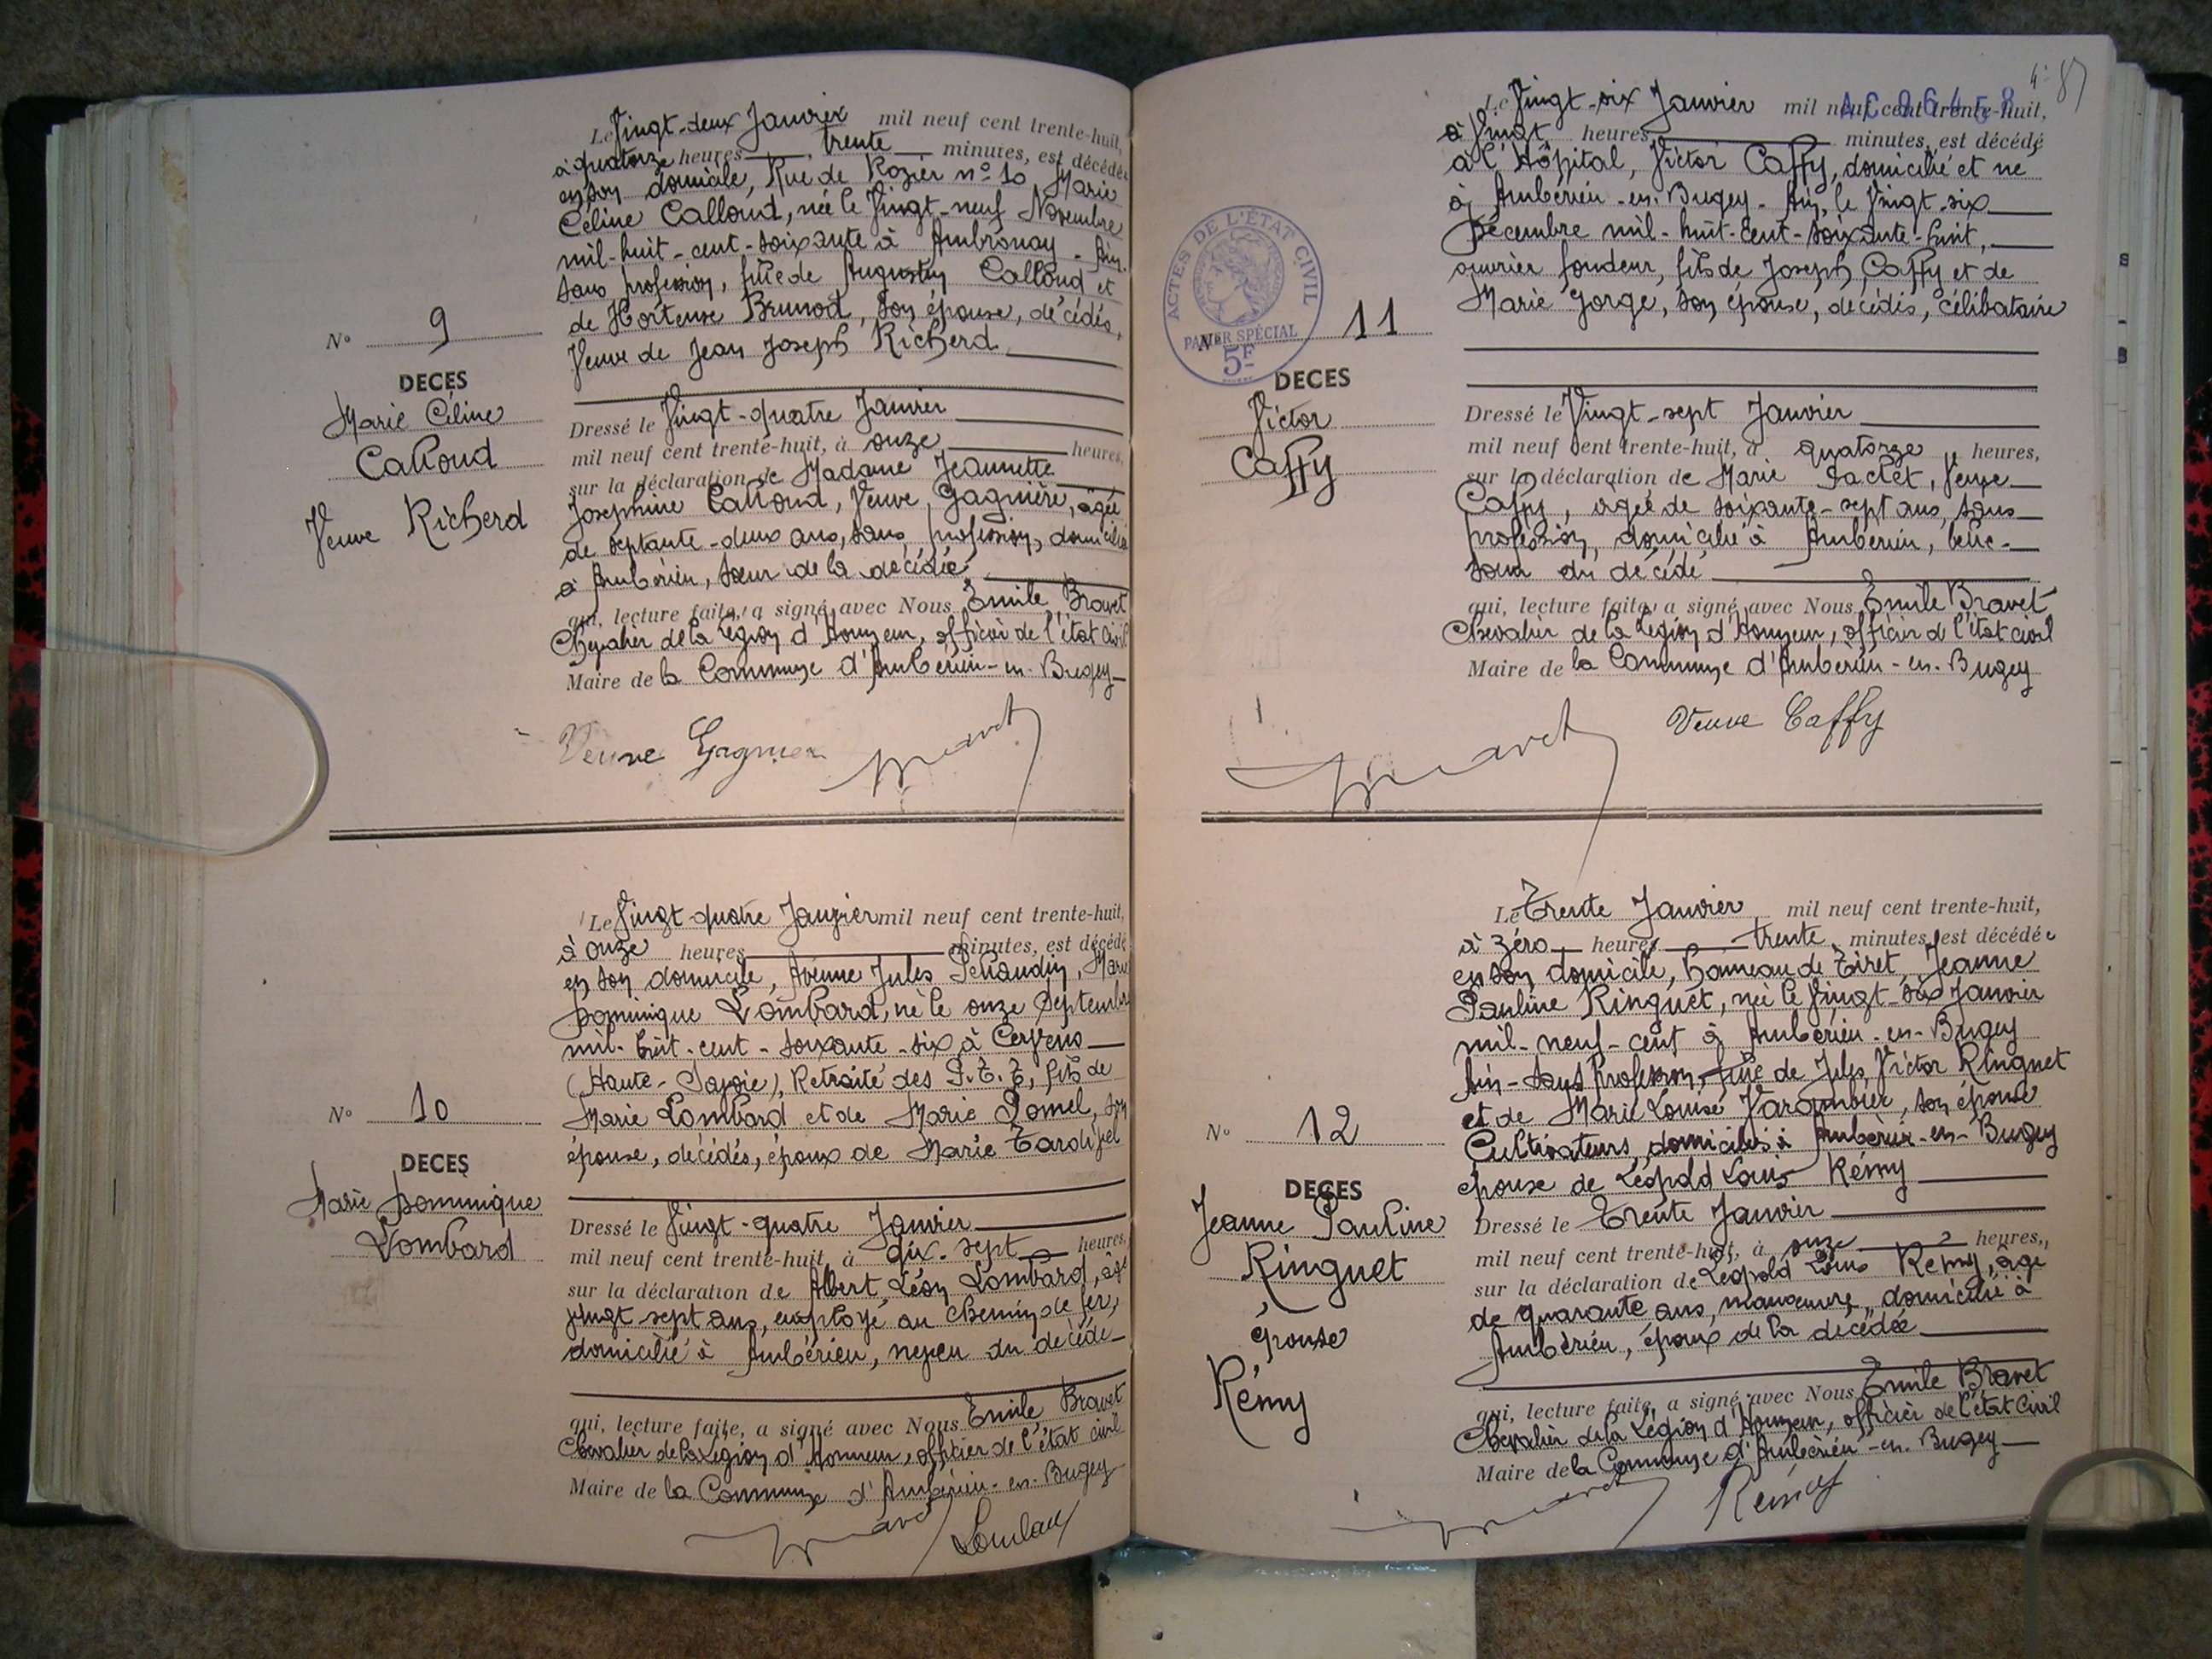 Le Vingt-deux Janvier mil neuf cent trente-huit,
à quatorze heures trente minutes, est décédée
en son domicile, Rue de Rozier n° 10 Marie
Céline Calloud, née le Vingt-neuf Novembre
mil-huit-cent-soixante à Ambronay - Ain.
sans profession, fille de Augustin Calloud et
de Hortense Brunod, son épouse, décédés,
Veuve de Jean Joseph Richerd
N° 9
DECES
Marie Céline
Calloud
Veuve Richerd
Dressé le Vingt-quatre Janvier
mil neuf cent trente-huit, à onze heures,
sur la déclaration de Madame Jeannette
Joséphine Calloud, Veuve Gagnière, âgée
de septante-deux ans, sans profession, domiciliée
à Ambérieu, sœur de la décédée
qui, lecture faite, a signé avec Nous Emile Bravet
Chevalier de la Légion d'Honneur, officier de l'état civil
Maire de la Commune d'Ambérieu-en-Bugey
Veuve
Le Vingt-quatre Janvier mil neuf cent trente-huit,
à onze heures minutes, est décédé
en son domicile, Avenue Jules Pellaudin, Marie
Dominique Lombard, né le onze Septembre
mil-huit-cent-soixante-six à Cervens
(Haute-Savoie), Retraité des P.T.T, fils de
Marie Lombard et de Marie Pomel, son
épouse, décédés, époux de Marie Tardivel
N° 10
DECES
Marie Dominique
Lombard
Dressé le Vingt-quatre Janvier
mil neuf cent trente-huit, à dix-sept heures,
sur la déclaration de Albert Léon Lombard, âgé
vingt-sept ans, employé au chemin de fer,
domicilié à Ambérieu, neveu du décédé
qui, lecture faite, a signé avec Nous Emile Bravet
Chevalier de la Légion d'Honneur, officier de l'état civil
Maire de la Commune d'Ambérieu-en-Bugey
87
Le Vingt-six Janvier mil neuf cent trente-huit,
à Vingt heures, minutes, est décédé
à l'Hôpital, Victor Caffy, domicilié et né
à Ambérieu-en-Bugey - Ain, le Vingt-six
Décembre mil-huit-cent-soixante-huit,
ouvrier fondeur, fils de Joseph Caffy et de
Marie Gorge, son épouse, décédés, célibataire
ACTES DE L'ÉTAT CIVIL
PAPIER SPÉCIAL
5F
N° 11
DECES
Victor
Caffy
Dressé le Vingt-sept Janvier
mil neuf cent trente-huit, à quatorze heures,
sur la déclaration de Marie Pactet, Veuve
Caffy, agée de soixante-sept ans, sans
profession, domicilié à Ambérieu, belle-
sœur du décédé
qui, lecture faite, a signé avec Nous Emile Bravet
Chevalier de la Légion d'Honneur, officier d l'état civil
Maire de la Commune d'Ambérieu-en-Bugey
Veuve Caffy
Le Trente Janvier mil neuf cent trente-huit,
à zéro heures trente minutes, est décédée
en son domicile, hameau de Tiret, Jeanne
Pauline Ringuet, née le Vingt-six Janvier
mil-neuf-cent à Ambérieu-en-Bugey
Ain-sans profession, fille de Jules Victor Ringuet
et de Marie Louise Varambier, son épouse
Cultivateurs, domiciliés à Ambérieu-en-Bugey
épouse de Léopold Louis Rémy
N° 12
DECES
Jeanne Pauline
Ringuet
épouse
Rémy
Dressé le Trente Janvier
mil neuf cent trente-huit, à onze heures,
sur la déclaration de Léopold Louis Rémy, âgé
de quarante ans, manœuvre, domicilié à
Ambérieu, époux de la décédée
qui, lecture faite, a signé avec Nous Emile Bravet
Chevalier de la Légion d'Honneur, officier de l'état civil
Maire de la Commune d'Ambérieu-en-Bugey
Rémy